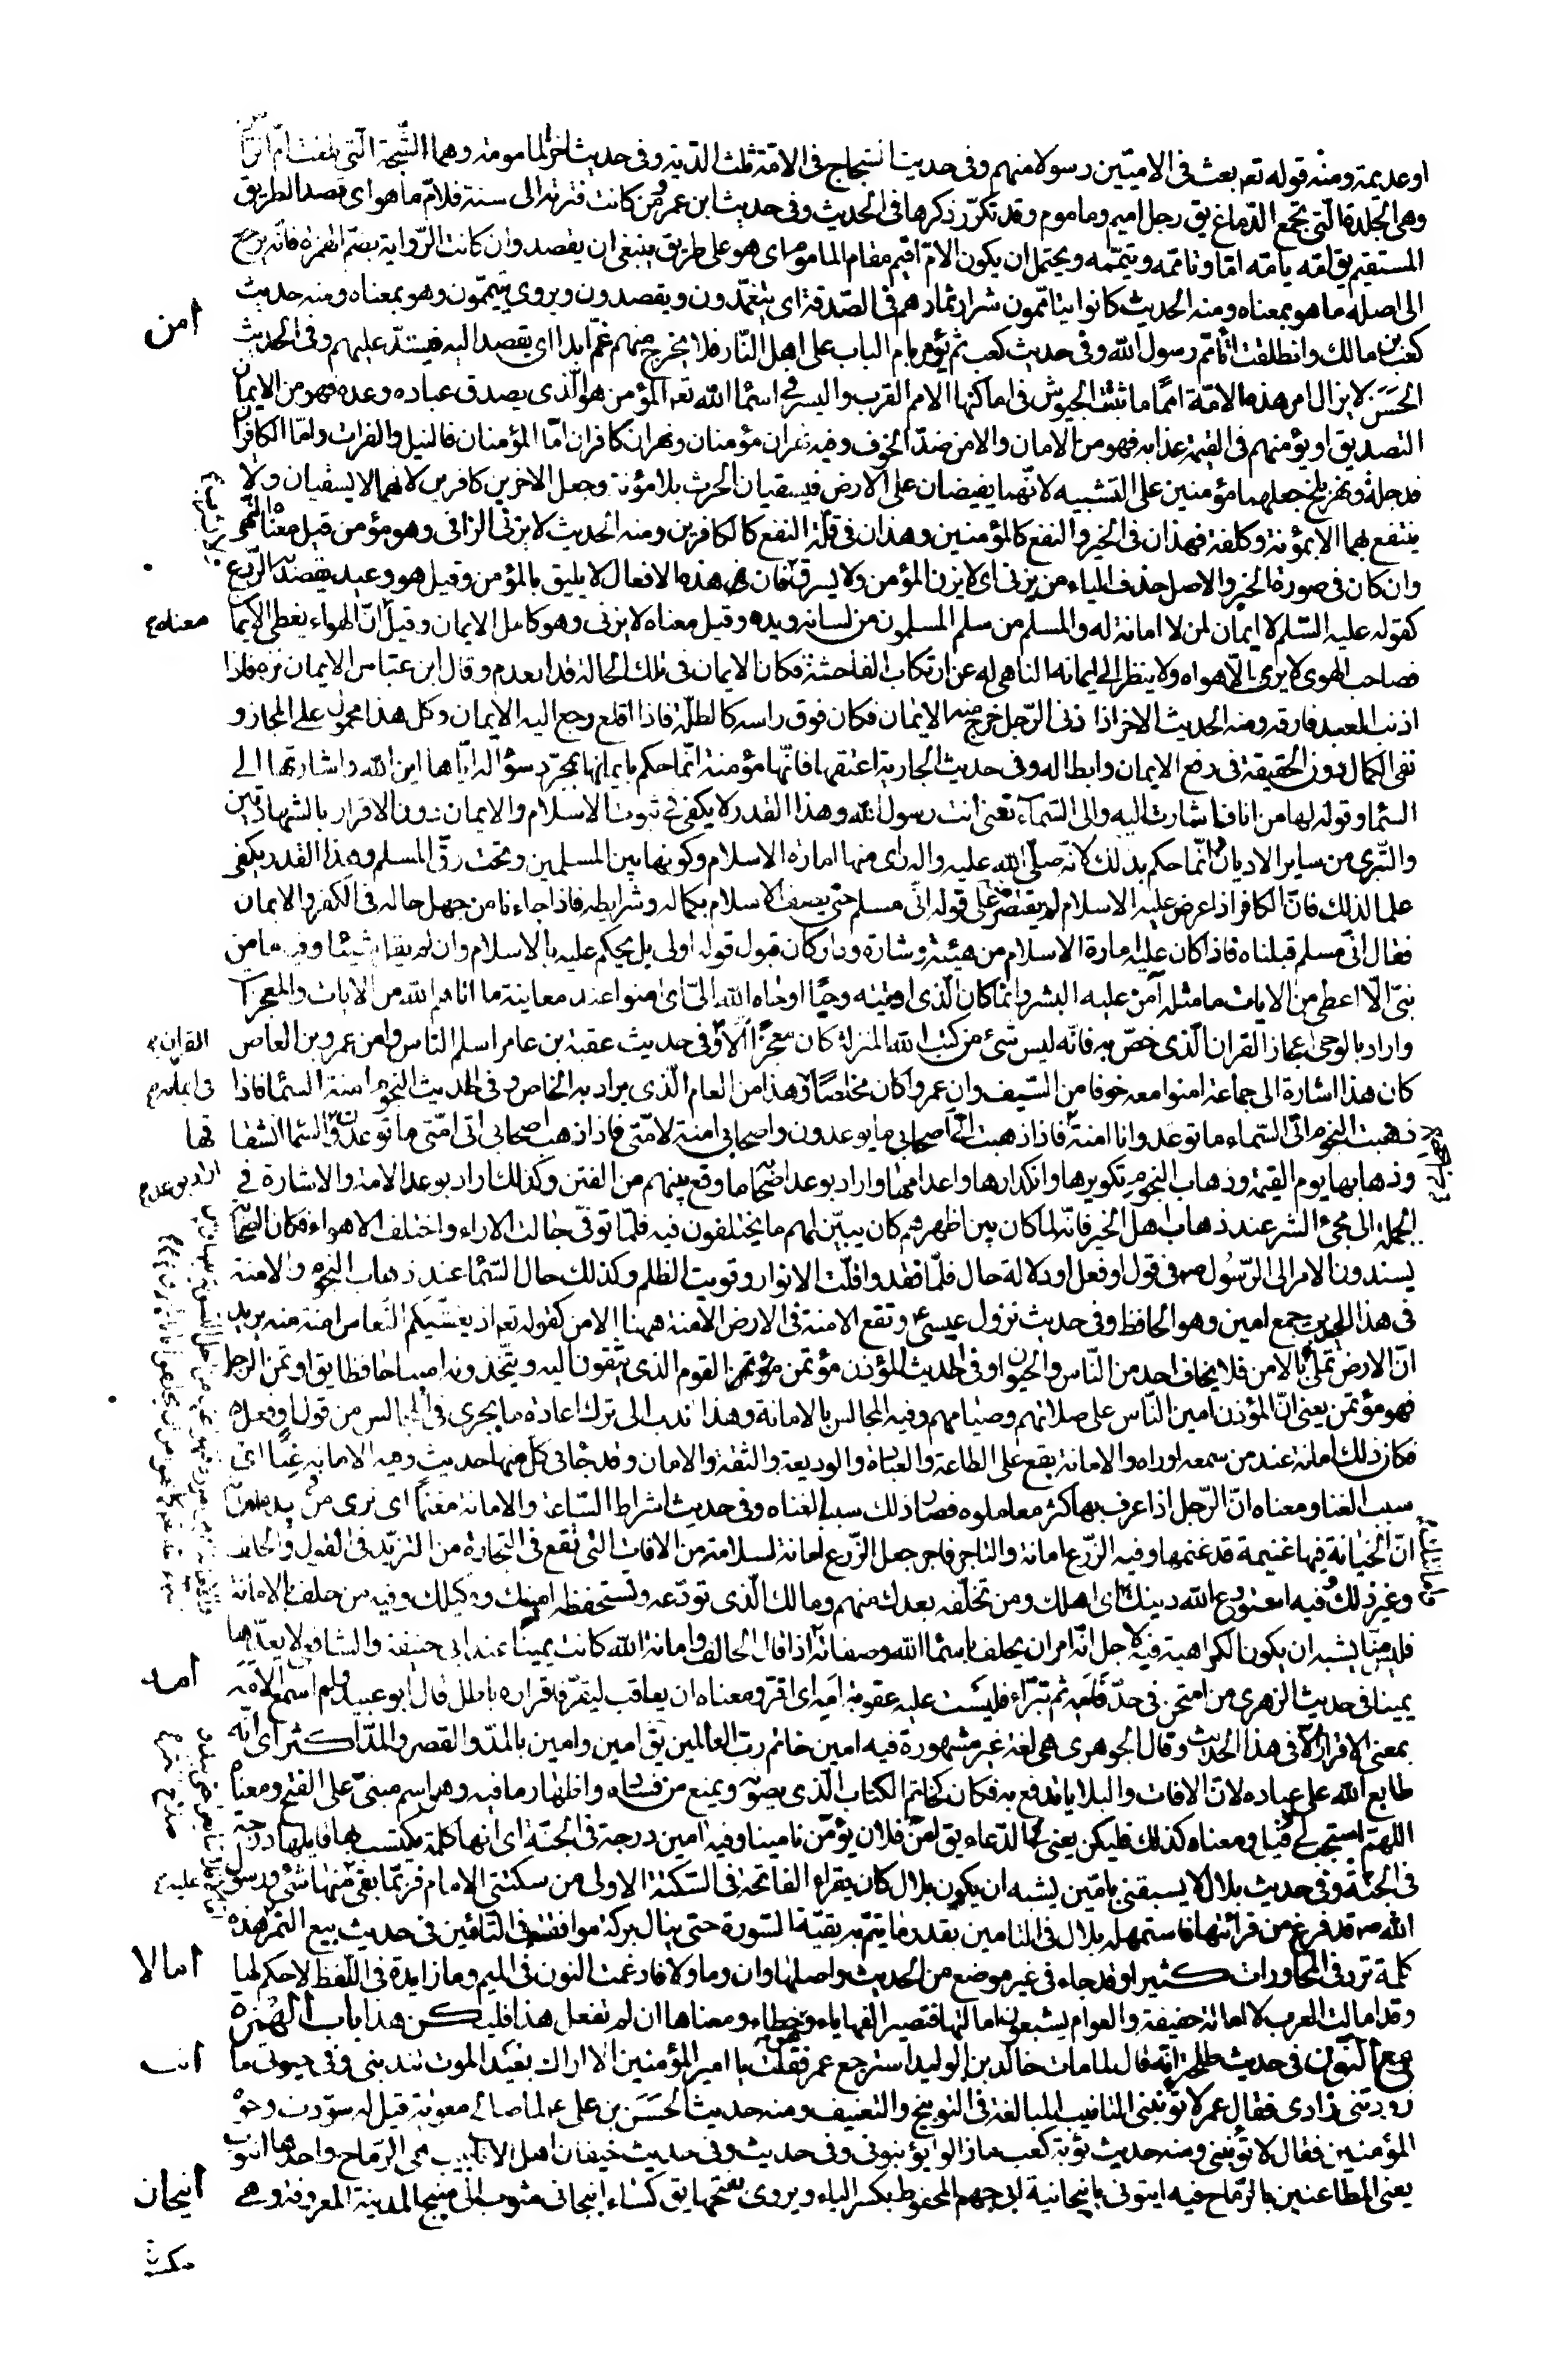 او عدیمة ومنه قوله تعه بعث فی الامیّین رسولا منهم وفی حدیث الشجاج فی الامّة ثلث الدّیة وفی حدیث اخر المامومة وهما الشّجّة الّتی بلغت امّ الرّاس
وهی الجلدة الّتی تجمع الدّماغ یق رجل امیم وماموم وقد تکرّر ذکرها فی الحدیث وفی حدیث ابن عمر من کانت فترته الی سنة فلامّ ما هو ای قصد الطریق
المستقیم یق امّه یامّه امّا وتامّمه وتیمّمه ویحتمل ان یکون الامّ اقیم مقام الماموم ای هو علی طریق ینبغی ان یقصد وان کانت الرّوایة بضم الهمزة فانّه یرجع
الی اصله ما هو بمعناه ومنه الحدیث کانوا یتامّمون شرار ثمارهم فی الصّدقة ای یتعمّدون ویقصدون ویروی یتیمّمون وهو بمعناه ومنه حدیث
کعب بن مالک وانطلقت اتامّم رسول الله وفی حدیث کعب ثم یؤمر بامّ الباب علی اهل النّار فلا یخرج منهم غمّ ابدا ای یقصد الیه فیسدّ علیهم وفی الحدیث
امن
الحسن لا یزال امر هذه الامّة امما ما ثبتت الجیوش فی اماکنها الامم القرب والیسر فی اسما الله تعه المؤمن هو الّذی یصدق عباده وعده فهو من الایمان
التصدیق او یؤمنهم فی القیمة عذابه فهو من الامان والامن ضدّ الخوف وفیه نهران مؤمنان ونهران کافران امّا المؤمنان فالنیل والفرات وامّا الکافران
فدجلة ونهر بلخ جعلهما مؤمنین علی التشبیه لانّهما یفیضان علی الارض فیسقیان الحرث بلا مؤنة وجعل الاخرین کافرین لانهما لا یسقیان ولا
ینتفع بهما الا بمؤنة وکلفة فهذان فی الخیر والنفع کالمؤمنین وهذان فی قلّة النفع کالکافرین ومنه الحدیث لا یزنی الزانی وهو مؤمن قیل معناه النّهی
وان کان فی صورة الخبر والاصل حذف الیاء من یزنی ای لا یزن المؤمن ولا یسرق فان هذه الافعال لا یلیق بالمؤمن وقیل هو وعید یقصد به الرّدع
کقوله علیه السّلم لا ایمان لمن لا امانة له والمسلم من سلم المسلمون من لسانه ویده وقیل معناه لا یزنی وهو کامل الایمان وقیل انّ الهواء یغطی الایما
معناه
فصاحب الهوی لا یری الّا هواه ولا ینظر الی ایمانه الناهی له عن ارتکاب الفاحشة فکان الایمان فی تلک الحالة قد انعدم وقال ابن عبّاس الایمان نزه فاذا
اذنب العبد فارقه ومنه الحدیث الاخر اذا زنی الرّجل خرج منه الایمان فکان فوق راسه کالظلّة فاذا اقلع رجع الیه الایمان وکل هذا محمول علی المجاز و
نفی الکمال دون الحقیقة فی رفع الایمان وابطاله وفی حدیث الجاریة اعتقها فانّها مؤمنة انّما حکم بایمانها بمجرّد سؤاله ایّاها این الله واشارتها الی
السّما وقوله لها من انا فاشارت الیه والی السّماء تعنی انت رسول الله وهذا القدر لا یکفی فی ثبوت الاسلام والایمان دون الاقرار بالشهادتین
والتّبری من سایر الادیان انّما حکم بذلک لانّه صلّی الله علیه واله رای منها امارة الاسلام وکونها بین المسلمین وتحت رقّ المسلم وهذا القدر یکفی
علما لذلک فانّ الکافر اذا عرض علیه الاسلام لم یقتصر علی قوله انّی مسلم حتی یصف الاسلام بکماله وشرایطه فاذا جاءنا من جهل حاله فی الکفر والایمان
فقال انّی مسلم قبلناه فاذا کان علیه امارة الاسلام من هیئة وشارة ودار کان قبول قوله اولی بل یحکم علیه بالاسلام وان لم یقل شیئا وفیه ما من
نبیّ الّا اعطی من الایات ما مثله آمن علیه البشر وانما کان الّذی اوتیته وحیا اوحاه الله الیّ ای امنوا عند معاینة ما اتاهم الله من الایات والمعجزات
واراد بالوحی اعجاز القران الّذی خصّ به فانّه لیس شیء من کتب الله المنزلة کان معجزا الّا وفی حدیث عقبة بن عامر اسلم الناس وامن عمرو بن العاص
القران
کان هذا اشارة الی جماعة امنوا معه خوفا من السّیف وان عمروا کان مخلصا وهذا من العام الّذی یراد به الخاص وفی الحدیث النجوم امنة السّما فاذا
فی ایمانه
ذهبت النجوم اتی السّماء ما توعد وانا امنة فاذا ذهبت اتی اصحابی ما یوعدون واصحابی امنة لامّتی فاذا ذهب اصحابی اتی امّتی ما توعدون السّما انشقا
قها
وذهابها یوم القیمة وذهاب النجوم تکویرها وانکدارها واعدامها واراد بوعد اصحابه ما وقع بینهم من الفتن وکذلک اراد بوعد الامة والاشارة فی
اراد بوعد
الجملة الی مجیء الشر عند ذهاب اهل الخیر فانّه لما کان بین اظهرهم کان یبیّن لهم ما یختلفون فیه فلمّا توفّی جالت الاراء واختلف الاهواء فکان الصّحابة
یسندون الامر الی الرّسول ص فی قول او فعل او دلالة حال فلمّا فقد وا قلّت الانوار وقویت الظلم وکذلک حال السّما عند ذهاب النجوم والامنة
فی هذا الحدیث جمع امین وهو الحافظ وفی حدیث نزول عیسی ع وتقع الامنة فی الارض الامنة ههنا الامن کقوله تعه اذ یغشّیکم النّعاس امنة منه یرید
انّ الارض تملئ بالامن فلا یخاف احد من النّاس والحیوان وفی الحدیث المؤذن مؤتمن مؤتمن القوم الذی یثقون الیه ویتّخذونه امینا حافظا یق اوتمن الرجل
فهو مؤتمن یعنی انّ المؤذن امین النّاس علی صلاتهم وصیامهم وفیه المجالس بالامانة وهذا ندب الی ترک اعادة ما یجری فی المجالس من قول وفعل
فکان ذلک امانة عند من سمعه او راه والامانة یقع علی الطاعة والعبادة والودیعة والثقة والامان وقد جاء فی کل منها حدیث وفیه الامانة غنا ای
سبب الغنا ومعناه انّ الرّجل اذا عرف بها کثر معاملوه فصار ذلک سببا لغناه وفی حدیث اشراط السّاعة والامانة مغنما ای یری من فی یده امانة
انّ الخیانة فیها غنیمة قد غنمها وفیه الزّرع امانة والتاجر فاجر جعل الزّرع امانة لسلامته من الافات التی تقع فی التجارة من التزیّد فی القول والحلف
وغیر ذلک وفیه استودع الله دینک ای اهلک ومن تخلّفه بعدک منهم ومالک الّذی تودّعه وتستحفظه امینک ووکیلک وفیه من حلف بالامانة
فلیس منّا یشبه ان یکون الکراهیة فیه لاجل انّه امر ان یحلف باسما الله وصفاته اذا قال الحالف وامانة الله کانت یمینا عند ابی حنیفة والشافعی لا یعدّها
امه
یمینا فی حدیث الزهری من امتحن فی حدّ فامه ثم تبرّاء فلیست علیه عقوبة امه ای اقر ومعناه ان یعاقب لیقرّ فاقراره باطل قال ابو عبید ولم اسمع الامه
بمعنی الاقرار الّا فی هذا الحدیث وقال الجوهری هی لغة غیر مشهورة فیه امین خاتم ربّ العالمین یق امین وامین بالمدّ والقصر والمدّ اکثر ای انّه
طابع الله علی عباده لانّ الافات والبلایا تدفع به فکان کخاتم الکتاب الّذی یصونه ویمنع من فساده واظهار ما فیه وهو اسم مبنیّ علی الفتح ومعناه
اللهمّ استجب لی وقیل ومعناه کذلک فلیکن یعنی الدّعاء یق امّن فلان یؤمّن تامینا وفیه امین درجة فی الجنّة ای انها کلمة یکتسب بها قایلها درجة
فی الجنّة وفی حدیث بلال لا یسبقنی بامین یشبه ان یکون بلال کان یقراء الفاتحة فی السّکتة الاولی من سکتتی الامام فربّما بقی منها شیء ورسول
الله ص قد فرغ من قرائتها فاستمهله بلال فی التامین بقدر ما یتمّ به بقیّة السّورة حتی ینال برکة موافقته فی التّامین فی حدیث بیع الثمر هذه
امالا
کلمة ترد فی المحاورات کثیرا وقد جاء فی غیر موضع من الحدیث واصلها وان وما ولا فادغمت النون فی المیم وما زایدة فی اللّفظ لا حکم لها
وقد امالت العرب لا امالة خفیفة والعوام یشبعون امالتها فتصیر الفها یاء وهو خطاء ومعناها ان لم تفعل هذا فلیکن هذا باب الهمزة
مع النّون فی حدیث طلحة انّه قال لما مات خالد بن الولید استرجع عمر فقلت یا امیر المؤمنین الا اراک بعید الموت تندبنی وفی حیوتی ما
انب
زوّدتنی زادی فقال عمر لا تؤنّبنی التانیب المبالغة فی التوبیخ والتعنیف ومنه حدیث الحسن بن علی ع لما صالح معویة قیل له سوّدت وجوه
المؤمنین فقال لا تؤنّبنی ومنه حدیث توبة کعب ما زالوا یؤنبونی وفی حدیث وفی حدیث خیفان اهل الانابیب هی الرّماح واحدها انبوب
یعنی المطاعنین بالرّماح فیه ایتونی بانبجانیة ابی جهم المحفوظ بکسر الباء ویروی بفتحها یق کساء انبجانی منسوب الی منبج المدینة المعروفة وهی
انبجان
مکسورة